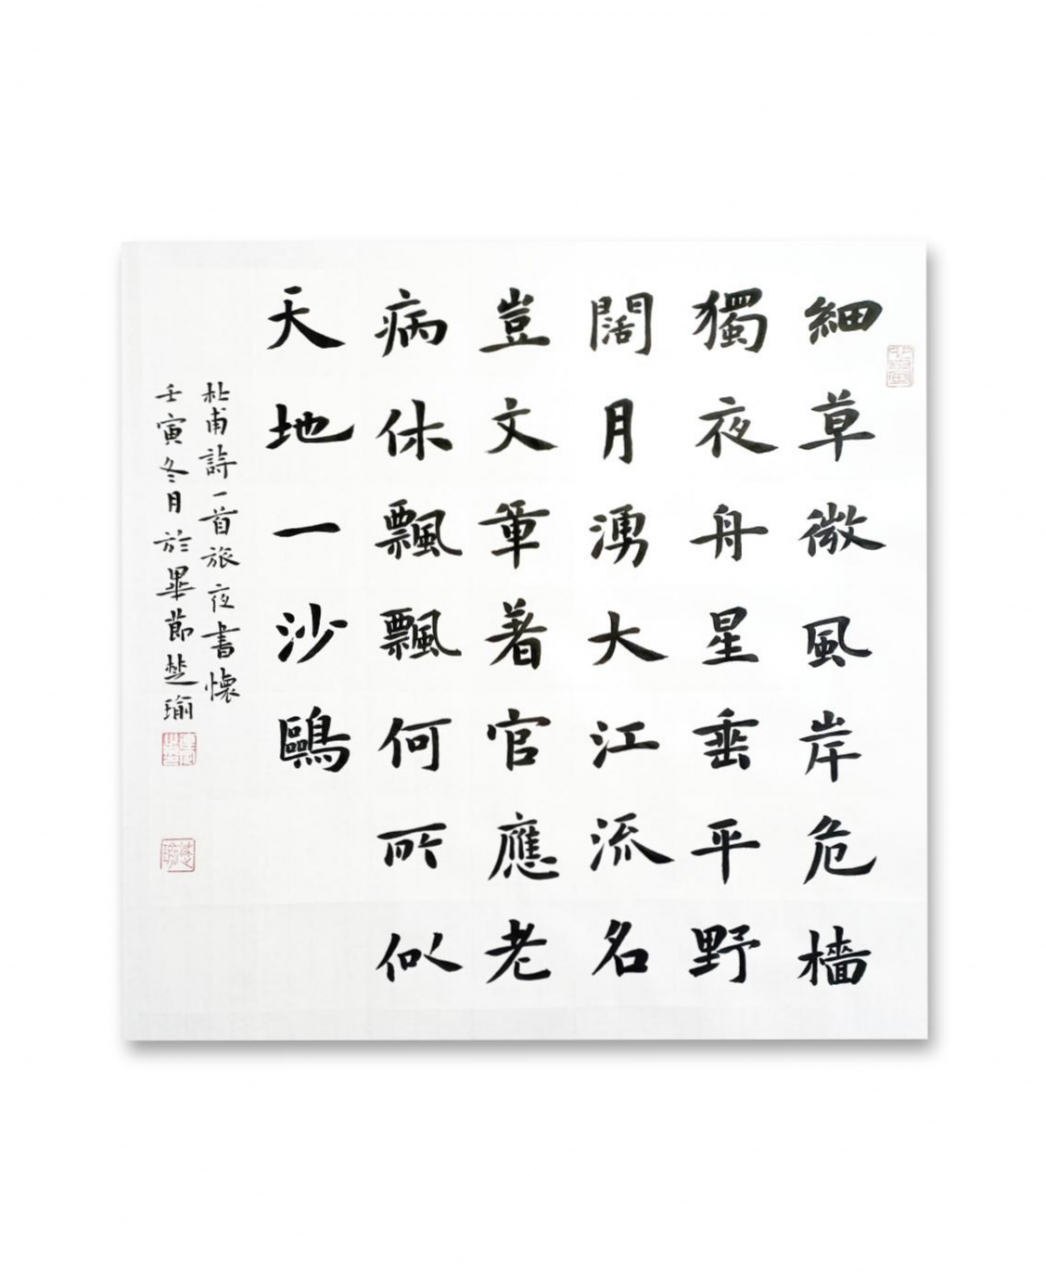 細草微風岸危檣
獨夜舟星垂平野
闊月湧大江流名
豈文章著官應老
病休飄飄何所似
天地一沙鷗
杜甫詩一首旅夜書懷
壬寅冬月於畢節楚瑜